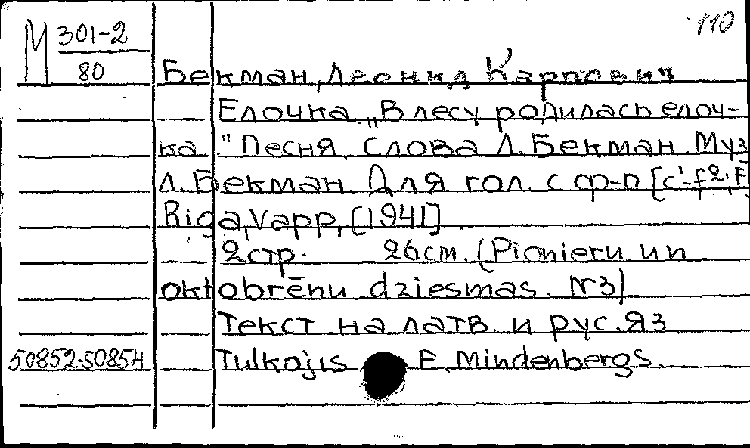 110
М 301-2
80
Бекман, Леонид Карпович
Елочка „В лесу родилась елоч-
ка" Песня. Слова Л. Бекман Муз
Л. Бекман. Для гол. с ф-п [c'-f2, F
Riga, Vapp, [1941]
2 стр. 26 см. (Pionieru un
oktobrēnu dziesmas. Nr3)
Текст на латв. и рус. яз
50852-50854 Tulkojis E. Mindenbergs